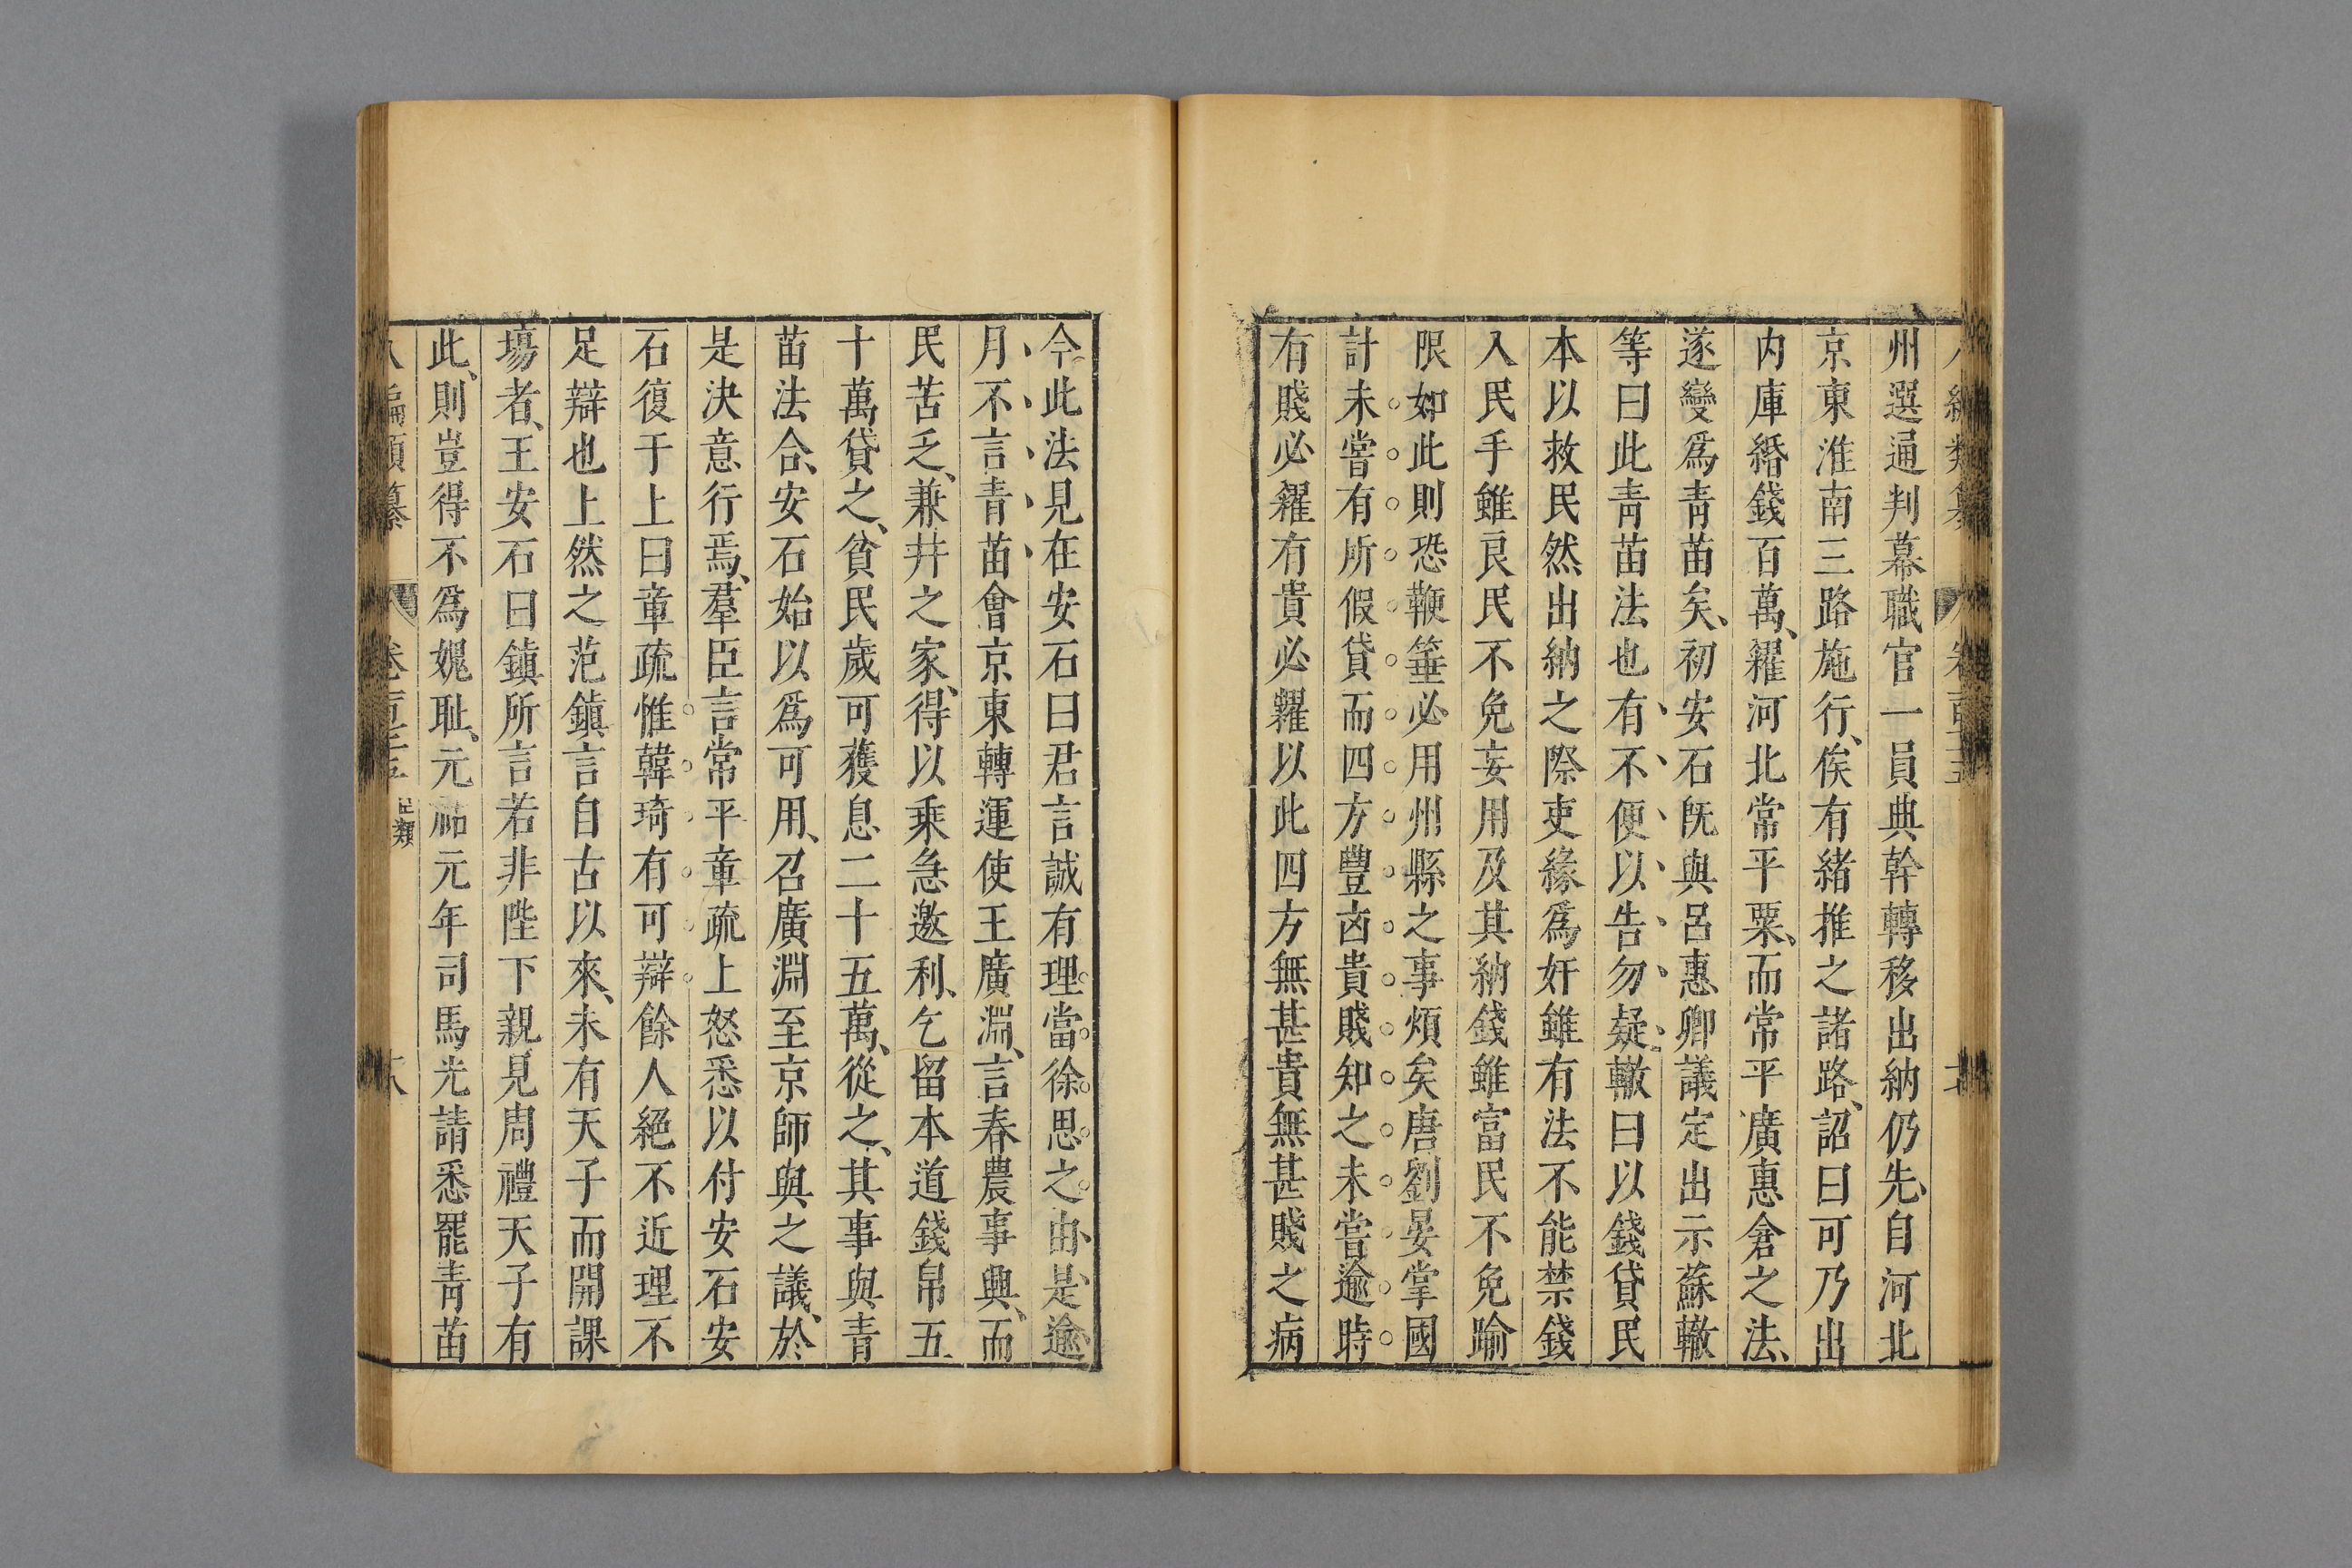 州選通判幕職官一員典幹轉移出納仍先自河北
京東淮南三路施行俟有緒推之諸路詔曰可乃出
内庫緡錢百萬糴河北常平粟而常平廣惠倉之法
遂變爲靑苗矣初安石旣與呂惠卿議定出示蘇轍
等曰此靑苗法也有不便以告勿疑轍曰以錢貸民
本以救民然出納之際吏緣爲奸雖有法不能禁錢
入民手雖良民不免妄用及其納錢雖富民不免踰
限如此則恐鞭箠必用州縣之事煩矣唐劉晏掌國
計未嘗有所假貸而四方豐凶貴賤知之未嘗逾時
有賤必糴有貴必糶以此四方無甚貴無甚賤之病
今此法見在安石曰君言誠有理當徐思之由是逾
月不言靑苗會京東轉運使王廣淵言春農事興而
民苦乏兼并之家得以乘急邀利乞留本道錢帛五
十萬貸之貧民歲可獲息二十五萬從之其事與青
苗法合安石始以爲可用召廣淵至京師與之議於
是決意行焉羣臣言常平章疏上怒悉以付安石安
石復于上曰章疏惟韓琦有可辯餘人絕不近理不
足辯也上然之范鎭言自古以來未有天子而開課
場者王安石曰鎭所言若非陛下親見周禮天子有
此則豈得不爲媿耻元祐元年司馬光請悉罷靑苗
編類纂 卷 類